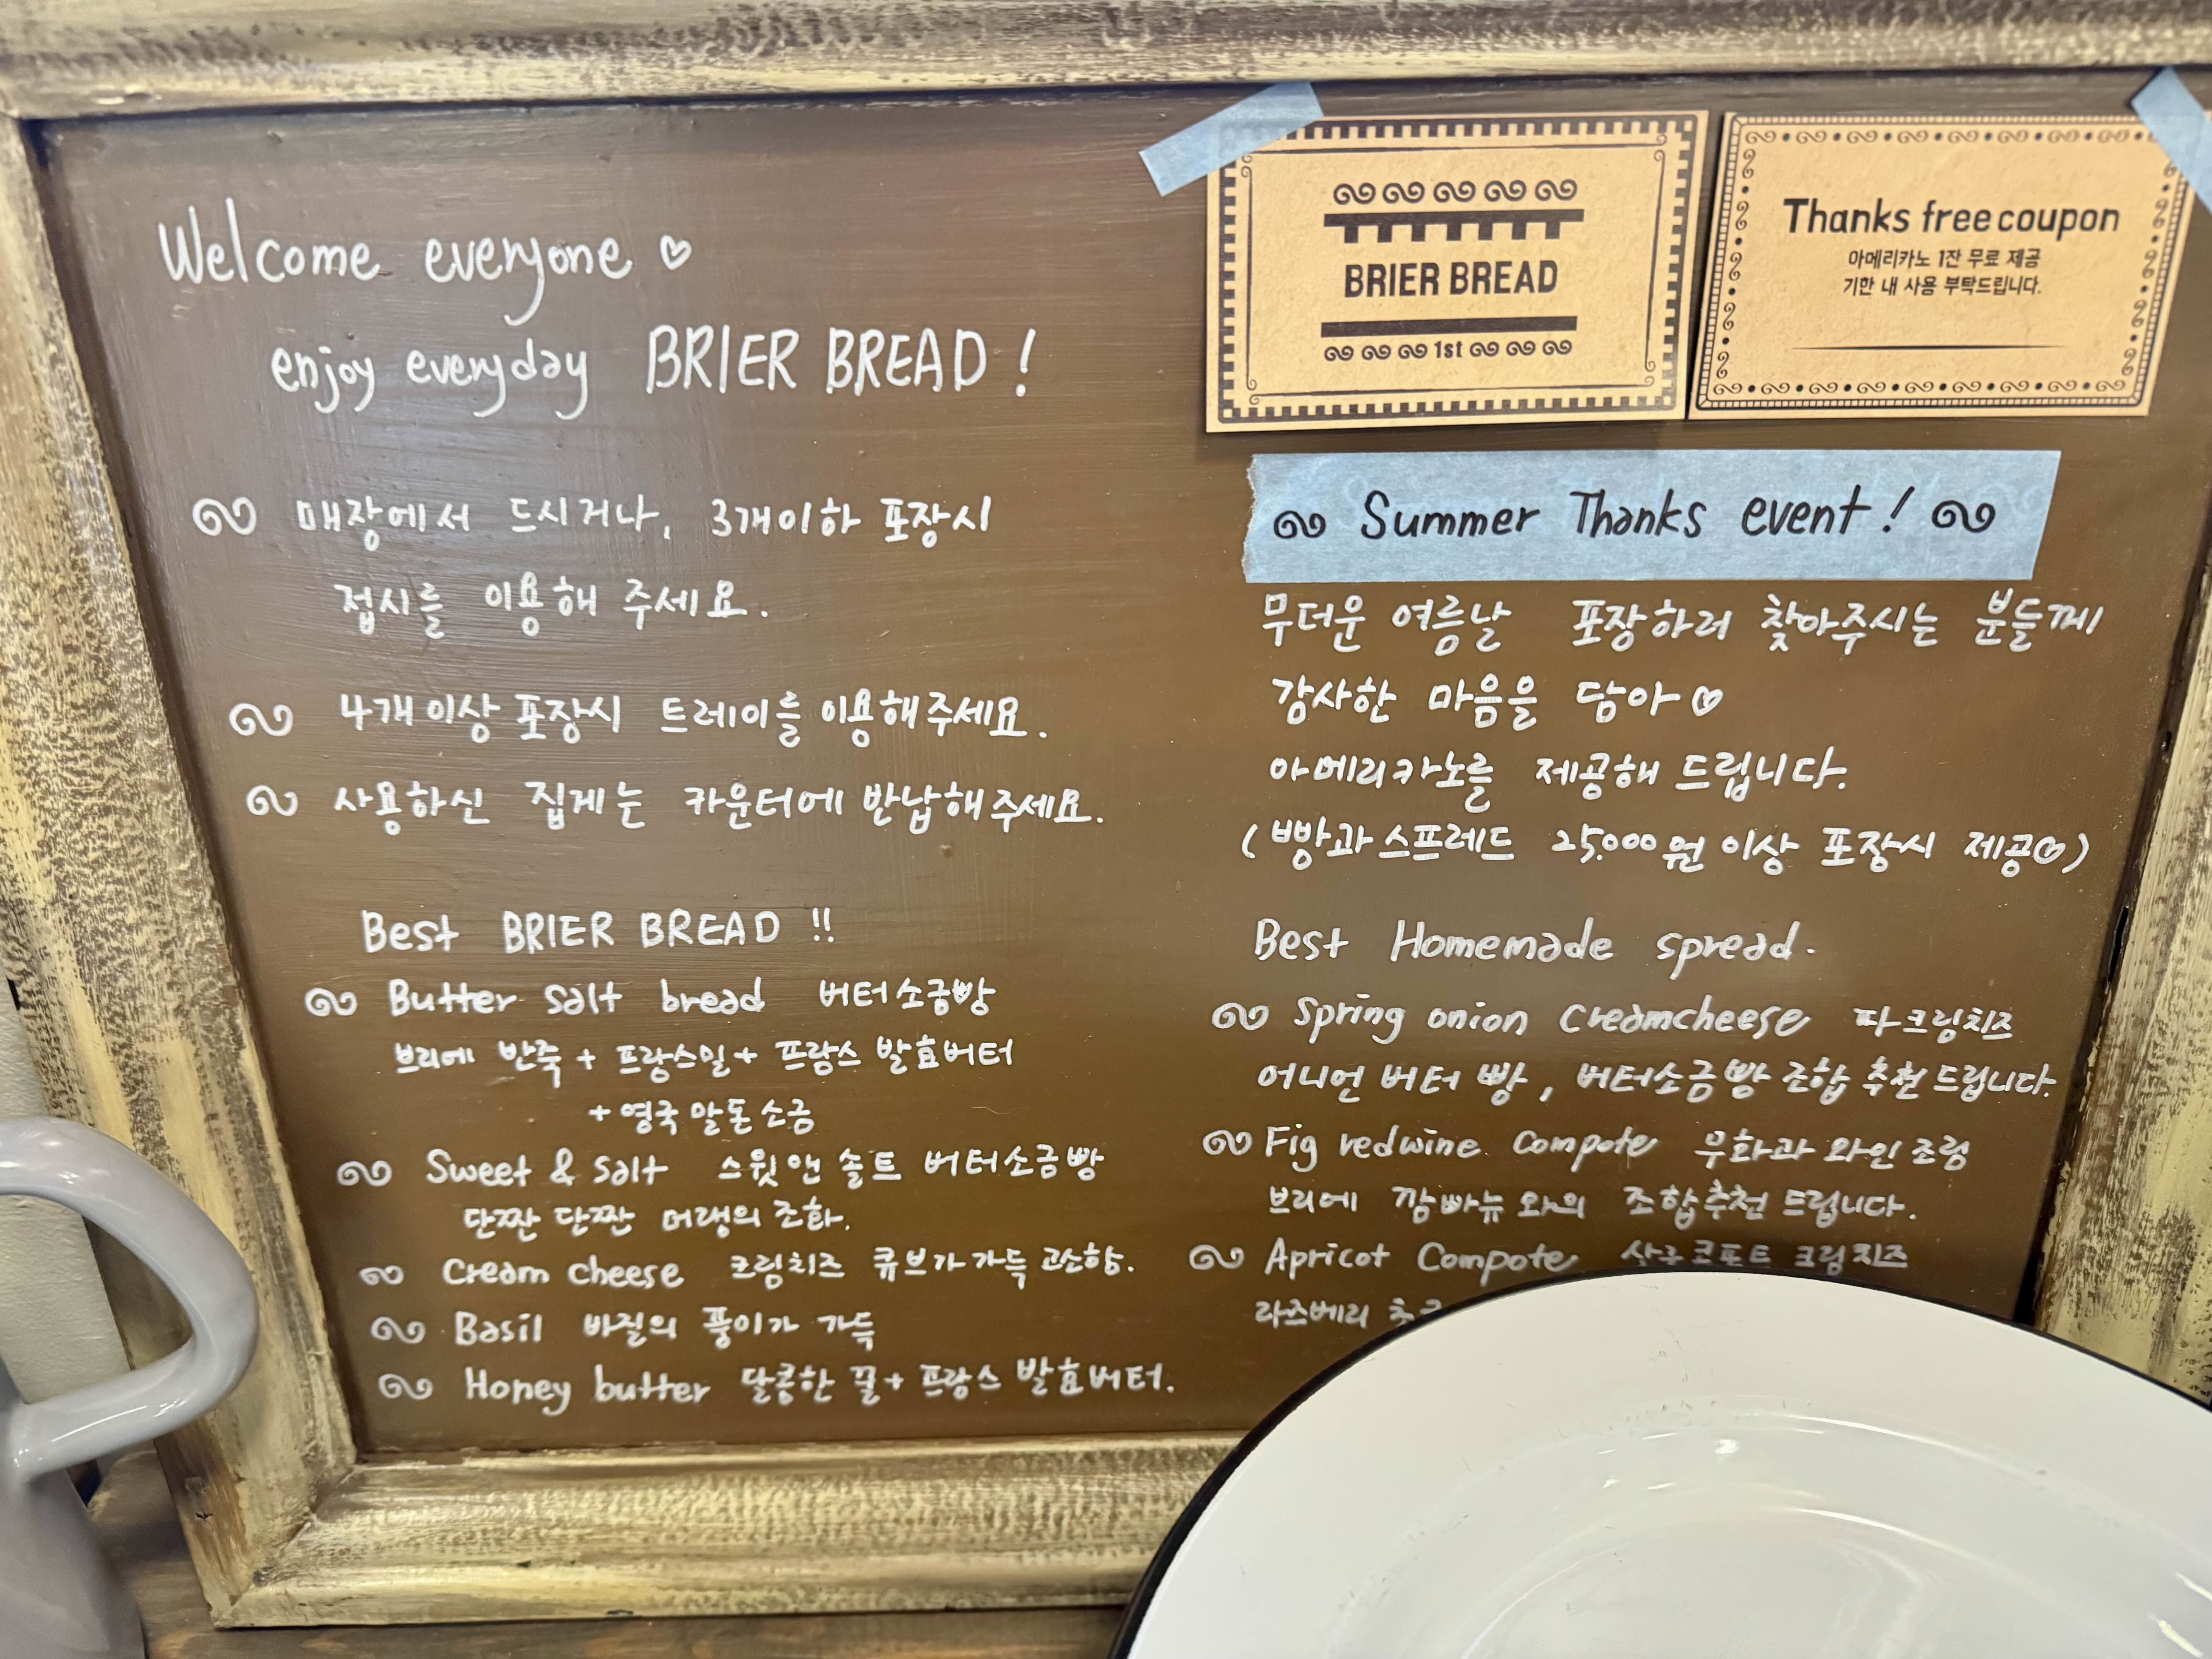 Welcome everyone ♡
enjoy everyday BRIER BREAD !
매장에서 드시거나, 3개이하 포장시
접시를 이용해 주세요.
4개이상 포장시 트레이를 이용해주세요.
사용하신 집게는 카운터에 반납해주세요.
Best BRIER BREAD !!
Butter salt bread 버터소금빵
브리에 반죽 + 프랑스밀 + 프랑스 발효버터
+ 영국 말돈 소금
Sweet & salt 스윗 앤 솔트 버터소금빵
단짠 단짠 머랭의 조화.
Cream cheese 크림치즈 큐브가 가득 고소함.
Basil 바질의 풍미가 가득
Honey butter 달콤한 꿀 + 프랑스 발효버터.
BRIER BREAD
1st
Thanks free coupon
아메리카노 1잔 무료 제공
기한 내 사용 부탁드립니다.
Summer Thanks event !
무더운 여름날 포장하러 찾아주시는 분들께
감사한 마음을 담아 ♡
아메리카노를 제공해 드립니다.
(빵과 스프레드 25.000원 이상 포장시 제공♡)
Best Homemade spread.
Spring onion creamcheese 파크림치즈
어니언 버터 빵, 버터소금빵 조합 추천드립니다.
Fig redwine compote 무화과 와인 조림
브리에 깜빠뉴 와의 조합추천 드립니다.
Apricot Compote 살구콤포트 크림치즈
라즈베리